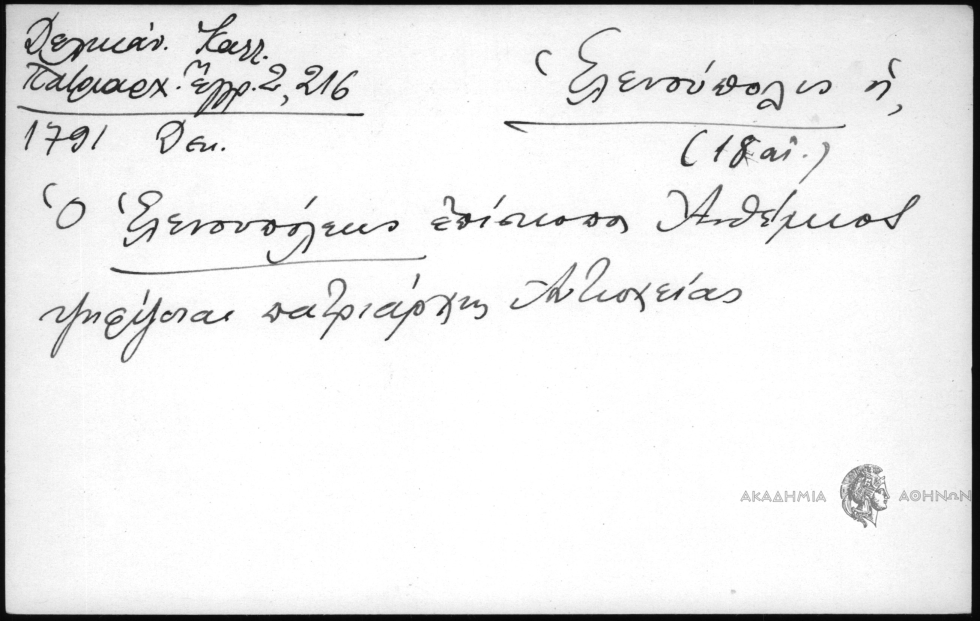 Δελικάν. Κατ.
Πατριαρχ. Ἔγγρ. 2, 216
1791 Δεκ.
Ἑλενούπολις ἡ,
(18 αἰ.)
Ὁ Ἑλενουπόλεως ἐπίσκοπος Ἄνθεμιος
ψηφίζεται πατριάρχης Ἀντιοχείας
ΑΚΑΔΗΜΙΑ ΑΘΗΝΩΝ